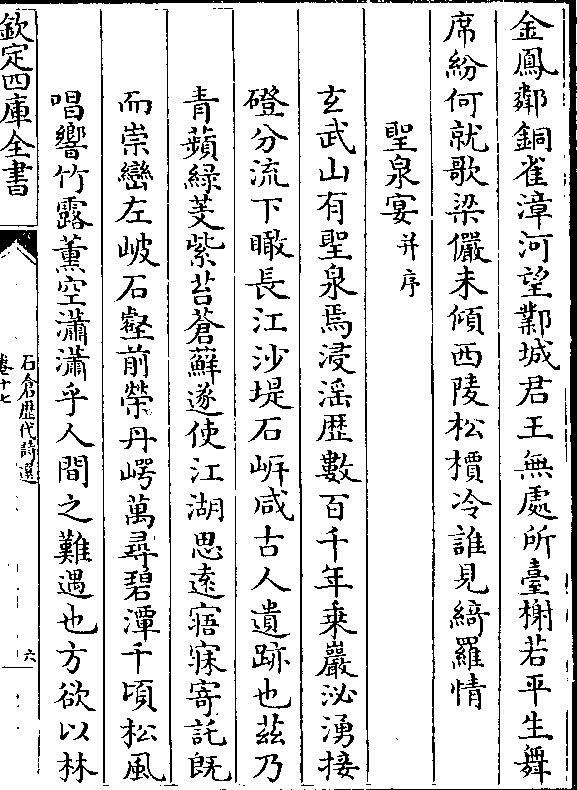 金鳳鄰銅雀漳河望鄴城君王無處所臺榭若平生舞
席紛何就歌梁儼未傾西陵松檟冷誰見綺羅情
聖泉宴并序
玄武山有聖泉焉浸淫歴數百千年乗巖泌湧接
磴分流下瞰長江沙堤石岍咸古人遺跡也茲乃
青蘋緑芰紫苔蒼蘚遂使江湖思逺寤寐寄託既
而崇巒左岥石壑前縈丹崿萬尋碧潭千頃松風
唱響竹露薫空瀟瀟乎人間之難遇也方欲以林
欽定四庫全書
石倉歴代詩選
卷十七
六